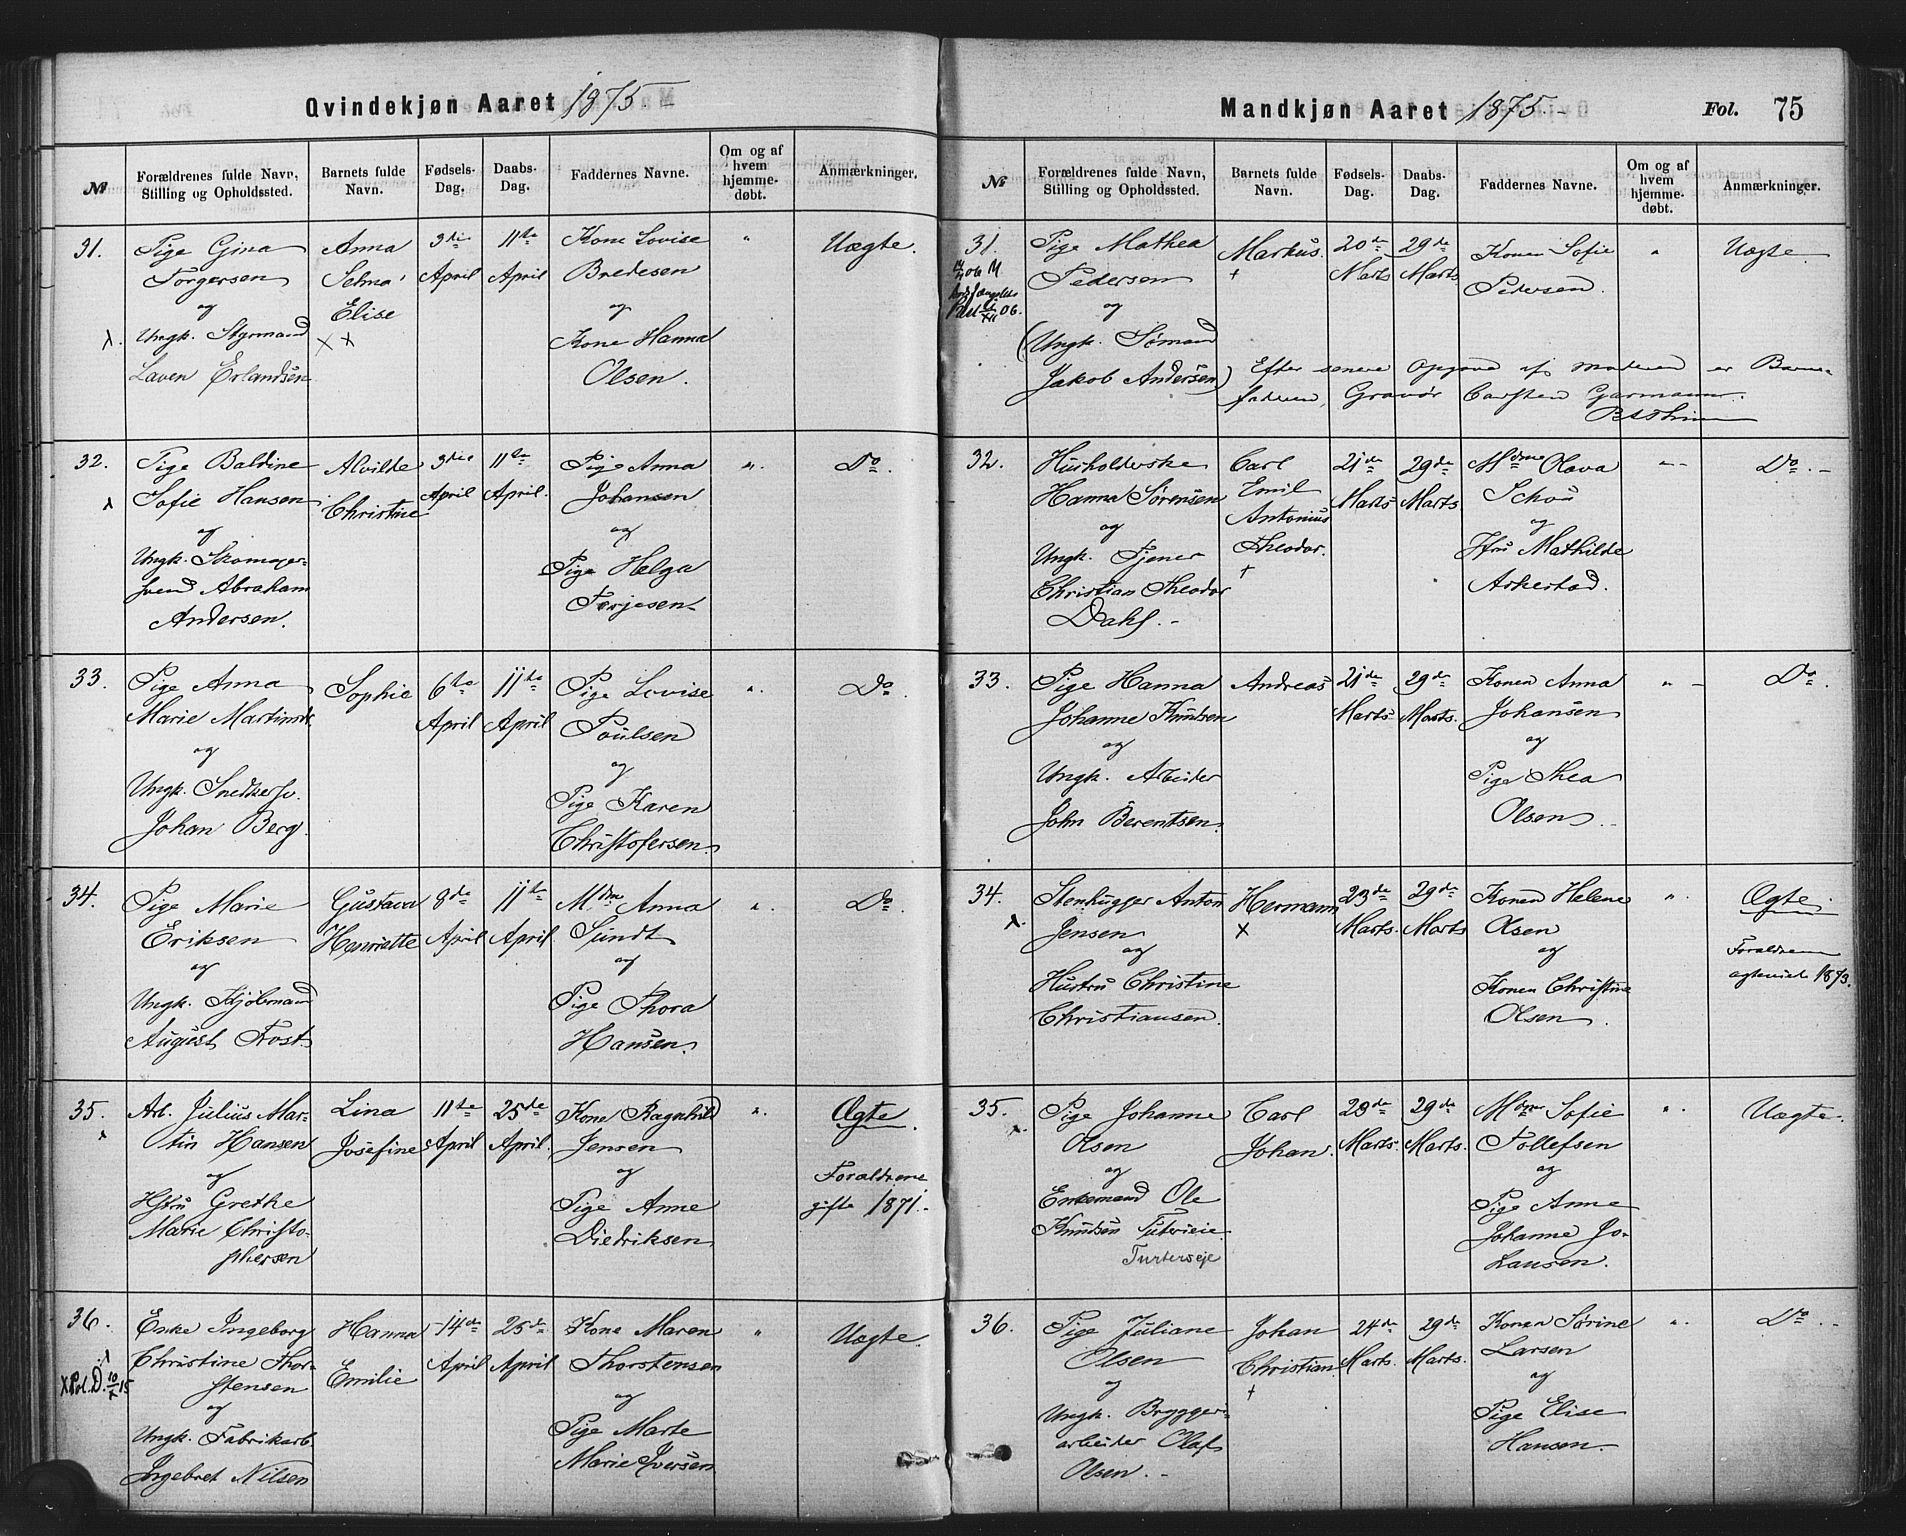 Qvindekjøn Aaret 1875.
№
Forældrenes fulde Navn,
Stilling og Opholdssted.
Barnets fulde
Navn.
Fødsels-
Dag.
Daabs-
Dag.
Faddernes Navne.
Om og af
hvem
hjemme-
døbt.
Anmærkninger.
31.
Pige Gina
Torgersen
og
Ungk. Styrmand
Laven Erlandsen
Anna
Selma
Elise
3die
April
11te
April
Kone Lovise
Bredesen
og
Kone Hanna
Olsen.
"
Uægte.
32.
Pige Baldine
Sofie Hansen
og
Ungk. Skomager-
svend Abraham
Andersen.
Alvilde
Christine
3die
April
11te
April.
Pige Anna
Johansen
og
Pige Helga
Terjesen
".
Do.
33.
Pige Anna
Marie Martinsd.
og
Ungk. Snedkersv.
Johan Berg.
Sophie
6te
April
11te
April
Pige Lovise
Poulsen
og
Pige Karen
Christofersen.
".
Do.
34.
Pige Marie
Eriksen
og
Ungk. Kjøbmand
August Frost.
Gustava
Henriette
8de
April
11te
April
Mdme Anna
Sundt
og
Pige Thora
Hansen.
".
Do.
35.
Arb. Julius Mar-
tin Hansen
og
Hstru Grethe
Marie Christo-
phersen
Lina
Josefine
11te
April
25de
April.
Kone Ragnhild
Jensen
og
Pige Anne
Diedriksen.
".
Ægte.
Forældrene
gifte 1871.
36.
X Pol. D. 10/X 15
Enke Ingeborg
Christine Thor-
stensen
og
Ungk. Fabrikarb.
Ingebret Nilsen
Hanna
Emilie
14de
April
25de
April
Kone Maren
Thorstensen
og
Pige Marte
Marie Iversen
"
Uægte.
Mandkjøn Aaret 1875.
Fol. 75
№
Forældrenes fulde Navn,
Stilling og Opholdssted.
Barnets fulde
Navn.
Fødsels-
Dag.
Daabs-
Dag.
Faddernes Navne.
Om og af
hvem
hjemme-
døbt.
Anmærkninger.
31.
Pige Mathea
Pedersen
og
(Ungk. Sømand
Jakob Andersen)
Markus.
20de
Marts
29de
Marts
Konen Sofie
Pedersen.
"
Uægte
Efter senere Opgave af Moderen er Barne-
faderen, Gravør Carsten Garmann
32.
Husholderske
Hanna Sørensen
og
Ungk. Tjener
Christian Theodor
Dahl.
Carl
Emil
Antonius
Theodor.
21de
Marts
29de
Marts
Mdme Olava
Schou
og
Jfru Mathilde
Askestad.
"
Do.
33.
Pige Hanna
Johanne Knudsen
og
Ungk. Arbeider
John Berentsen.
Andreas
21de
Marts
29de
Marts.
Konen Anna
Johansen
og
Pige Thea
Olsen.
"
Do.
34.
Stenhugger Anton
Jensen
og
Hustru Christine
Christiansen.
Hermann
23de
Marts.
29de
Marts
Konen Helene
Olsen
og
Konen Christine
Olsen.
".
Ægte.
Forældrene
ægteviet 1873.
35.
Pige Johanne
Olsen
og
Enkemand Ole
Knudsen Tuterseie
Turterseje
Carl
Johan.
28de
Marts.
29de
Marts.
Mdme Sofie
Tollefsen
og
Pige Anne
Johanne Jo-
hansen.
".
Uægte.
36.
Pige Juliane
Olsen
og
Ungk. Brygger-
arbeider Olaf
Olsen.
Johan
Christian.
24de
Marts.
29de
Marts.
Konen Sørine
Larsen
og
Pige Elise
Hansen.
".
Do.